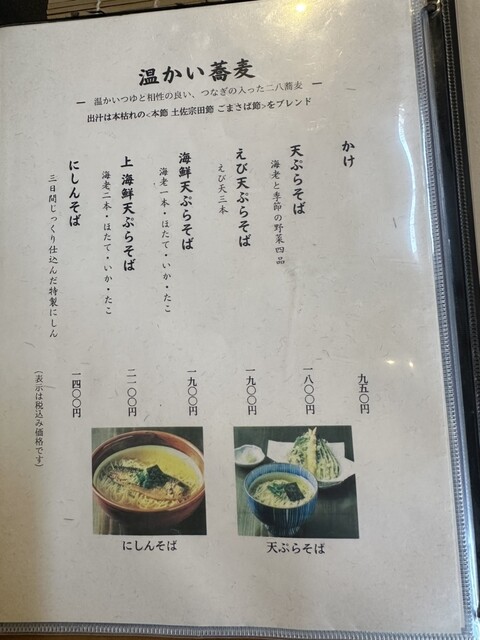 温かい蕎麦
― 温かいつゆと相性の良い、つなぎの入った二八蕎麦 ―
出汁は本枯れの<本節 土佐宗田節 ごまさば節>をブレンド
かけ
九五〇円
天ぷらそば
海老と季節の野菜四品
一八〇〇円
えび天ぷらそば
えび天三本
一九〇〇円
海鮮天ぷらそば
海老一本・ほたて・いか・たこ
一九〇〇円
上 海鮮天ぷらそば
海老二本・ほたて・いか・たこ
二一〇〇円
にしんそば
三日間じっくり仕込んだ特製にしん
一四〇〇円
(表示は税込み価格です)
にしんそば
天ぷらそば